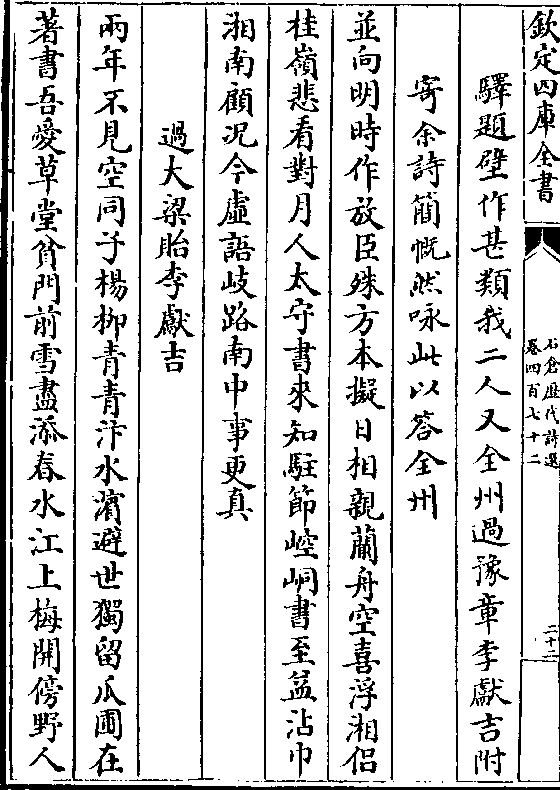 欽定四庫全書
石倉歷代詩選
卷四百七十二
二十二
驛題壁作甚類我二人又全州過豫章李獻吉附
寄余詩簡慨然咏此以答全州
並向明時作放臣殊方本擬日相親蘭舟空喜浮湘侣
桂嶺悲看對月人太守書來知駐節崆峒書至益沾巾
湘南顧况今虛語歧路南中事更真
過大梁貽李獻吉
兩年不見空同子楊柳青青汴水濱避世獨留瓜圃在
著書吾愛草堂貧門前雪盡添春水江上梅開傍野人